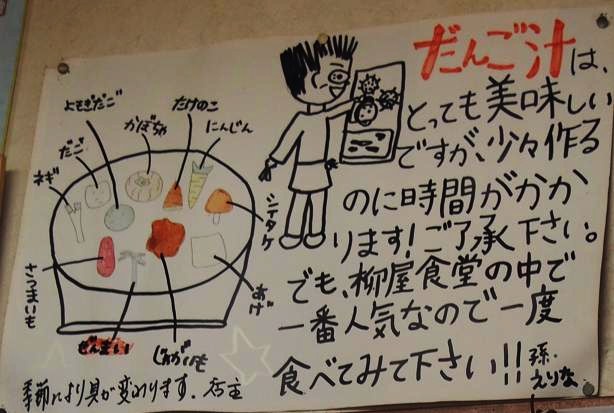 だんご汁は、
とっても美味しい
ですが、少々作る
のに時間がかか
ります！ご了承下さい。
でも、柳屋食堂の中で
一番人気なので一度
食べてみて下さい!!
孫、
えりな
よもぎだご
たけのこ
かぼちゃ
にんじん
だご
ネギ
シイタケ
さつまいも
ぜんまい
じゃがいも
あげ
季節により具が変わります。店主